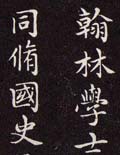 翰林學士
同脩國史